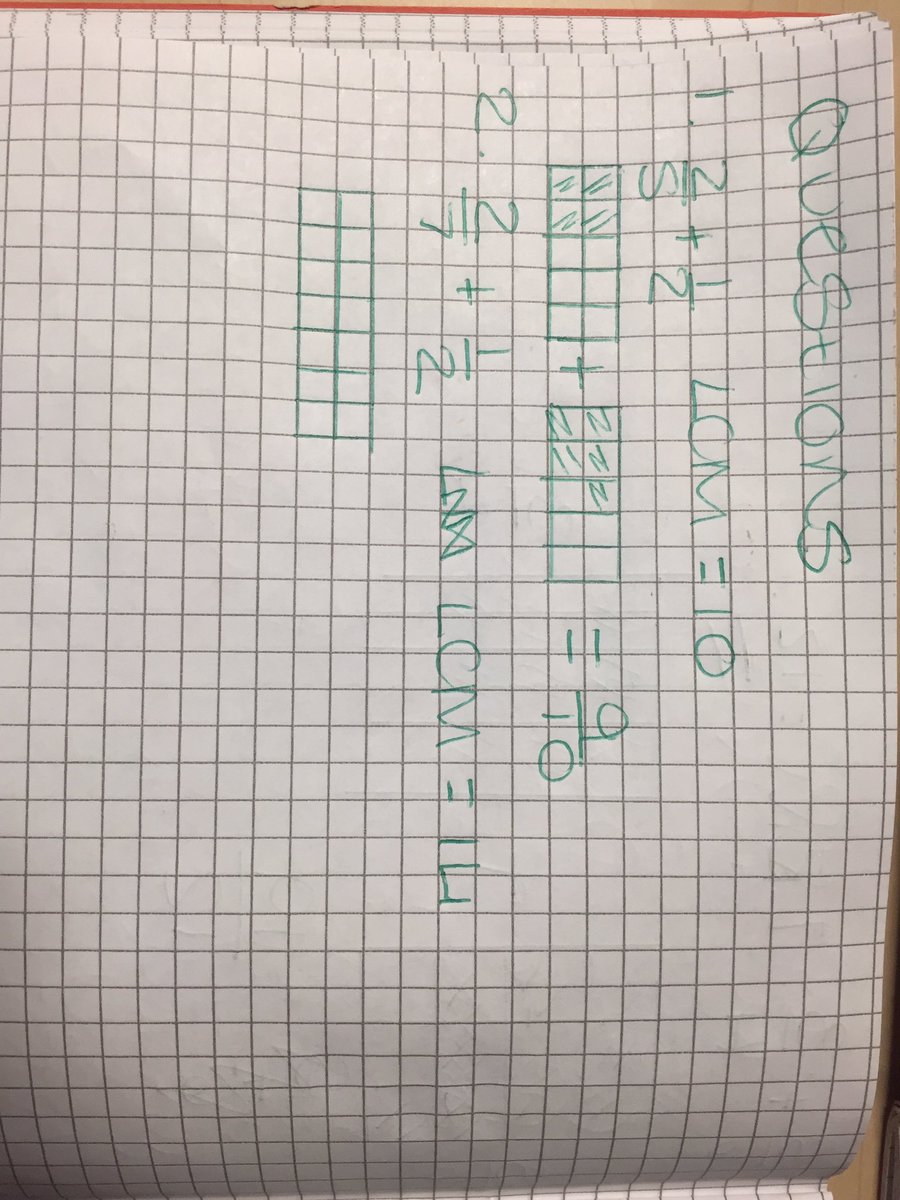 Questions
1. 2/5 + 1/2 LCM = 10
+ = 9/10
2. 2/7 + 1/2 LCM = 14